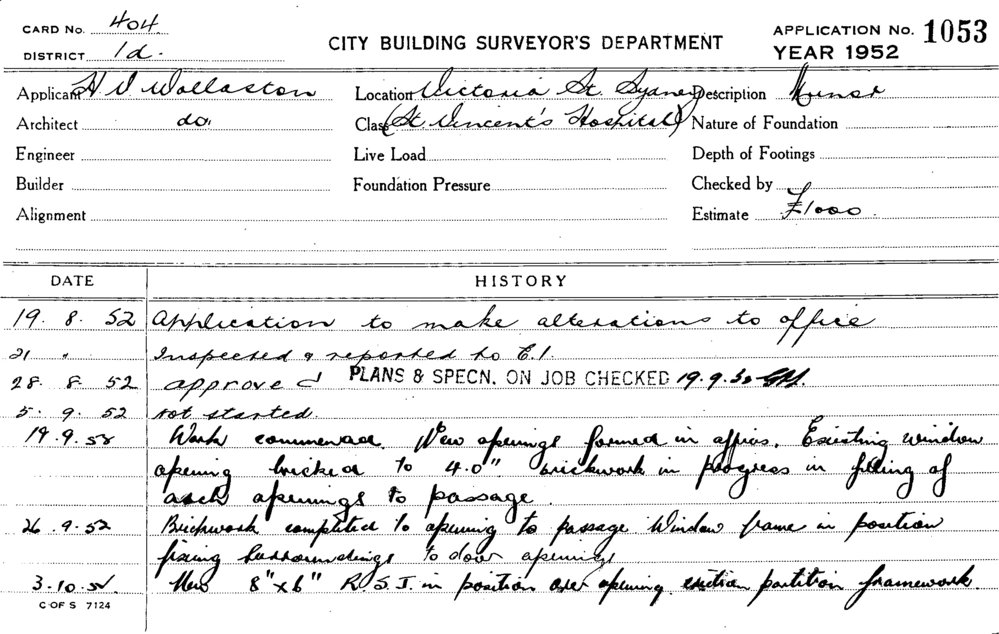 CARD No. 404.
DISTRICT 1d.
CITY BUILDING SURVEYOR'S DEPARTMENT
APPLICATION No. 1053
YEAR 1952
Applicant H V Wollaston
Location Victoria St Sydney
Description Minor
Architect do.
Class (St. Vincent's Hospital)
Nature of Foundation
Engineer
Live Load
Depth of Footings
Builder
Foundation Pressure
Checked by
Alignment
Estimate £1000.
DATE HISTORY
19. 8. 52 Application to make alterations to office
21 " Inspected & reported to E.I.
28. 8. 52 approved PLANS & SPECN. ON JOB CHECKED 19.9.52
5. 9. 52 not started.
19.9.52 Work commenced. New openings formed in offices. Existing window
opening bricked to 4.0" brickwork in progress in filling of
arch openings to passage.
26.9.52 Brickwork completed to opening to passage Window frame in position
fixing to door openings
3.10.52 New 8"x6" R.S.J. in position over opening erection partition framework.
C OF S 7124